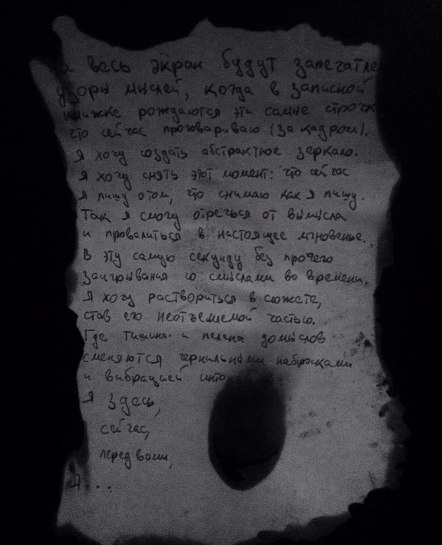 а весь экран будут запечатле
узоры мыслей, когда в записной
книжке рождаются эти самые строчк
что сейчас проговариваю (за кадром).
Я хочу создать абстрактное зеркало.
Я хочу снять этот момент: что сейчас
я пишу о том, что снимаю как я пишу.
Так я смогу отречься от вымысла
и провалиться в настоящее мгновенье..
В эту самую секунду без прочего
заигрывания со смыслами во времени.
Я хочу раствориться в сюжете,
став его неотъемлемой частью.
Где тишина и пелена домыслов
сменяются чернильными набросками
и вибрацией инто
Я здесь,
сейчас,
перед вами,
Я...